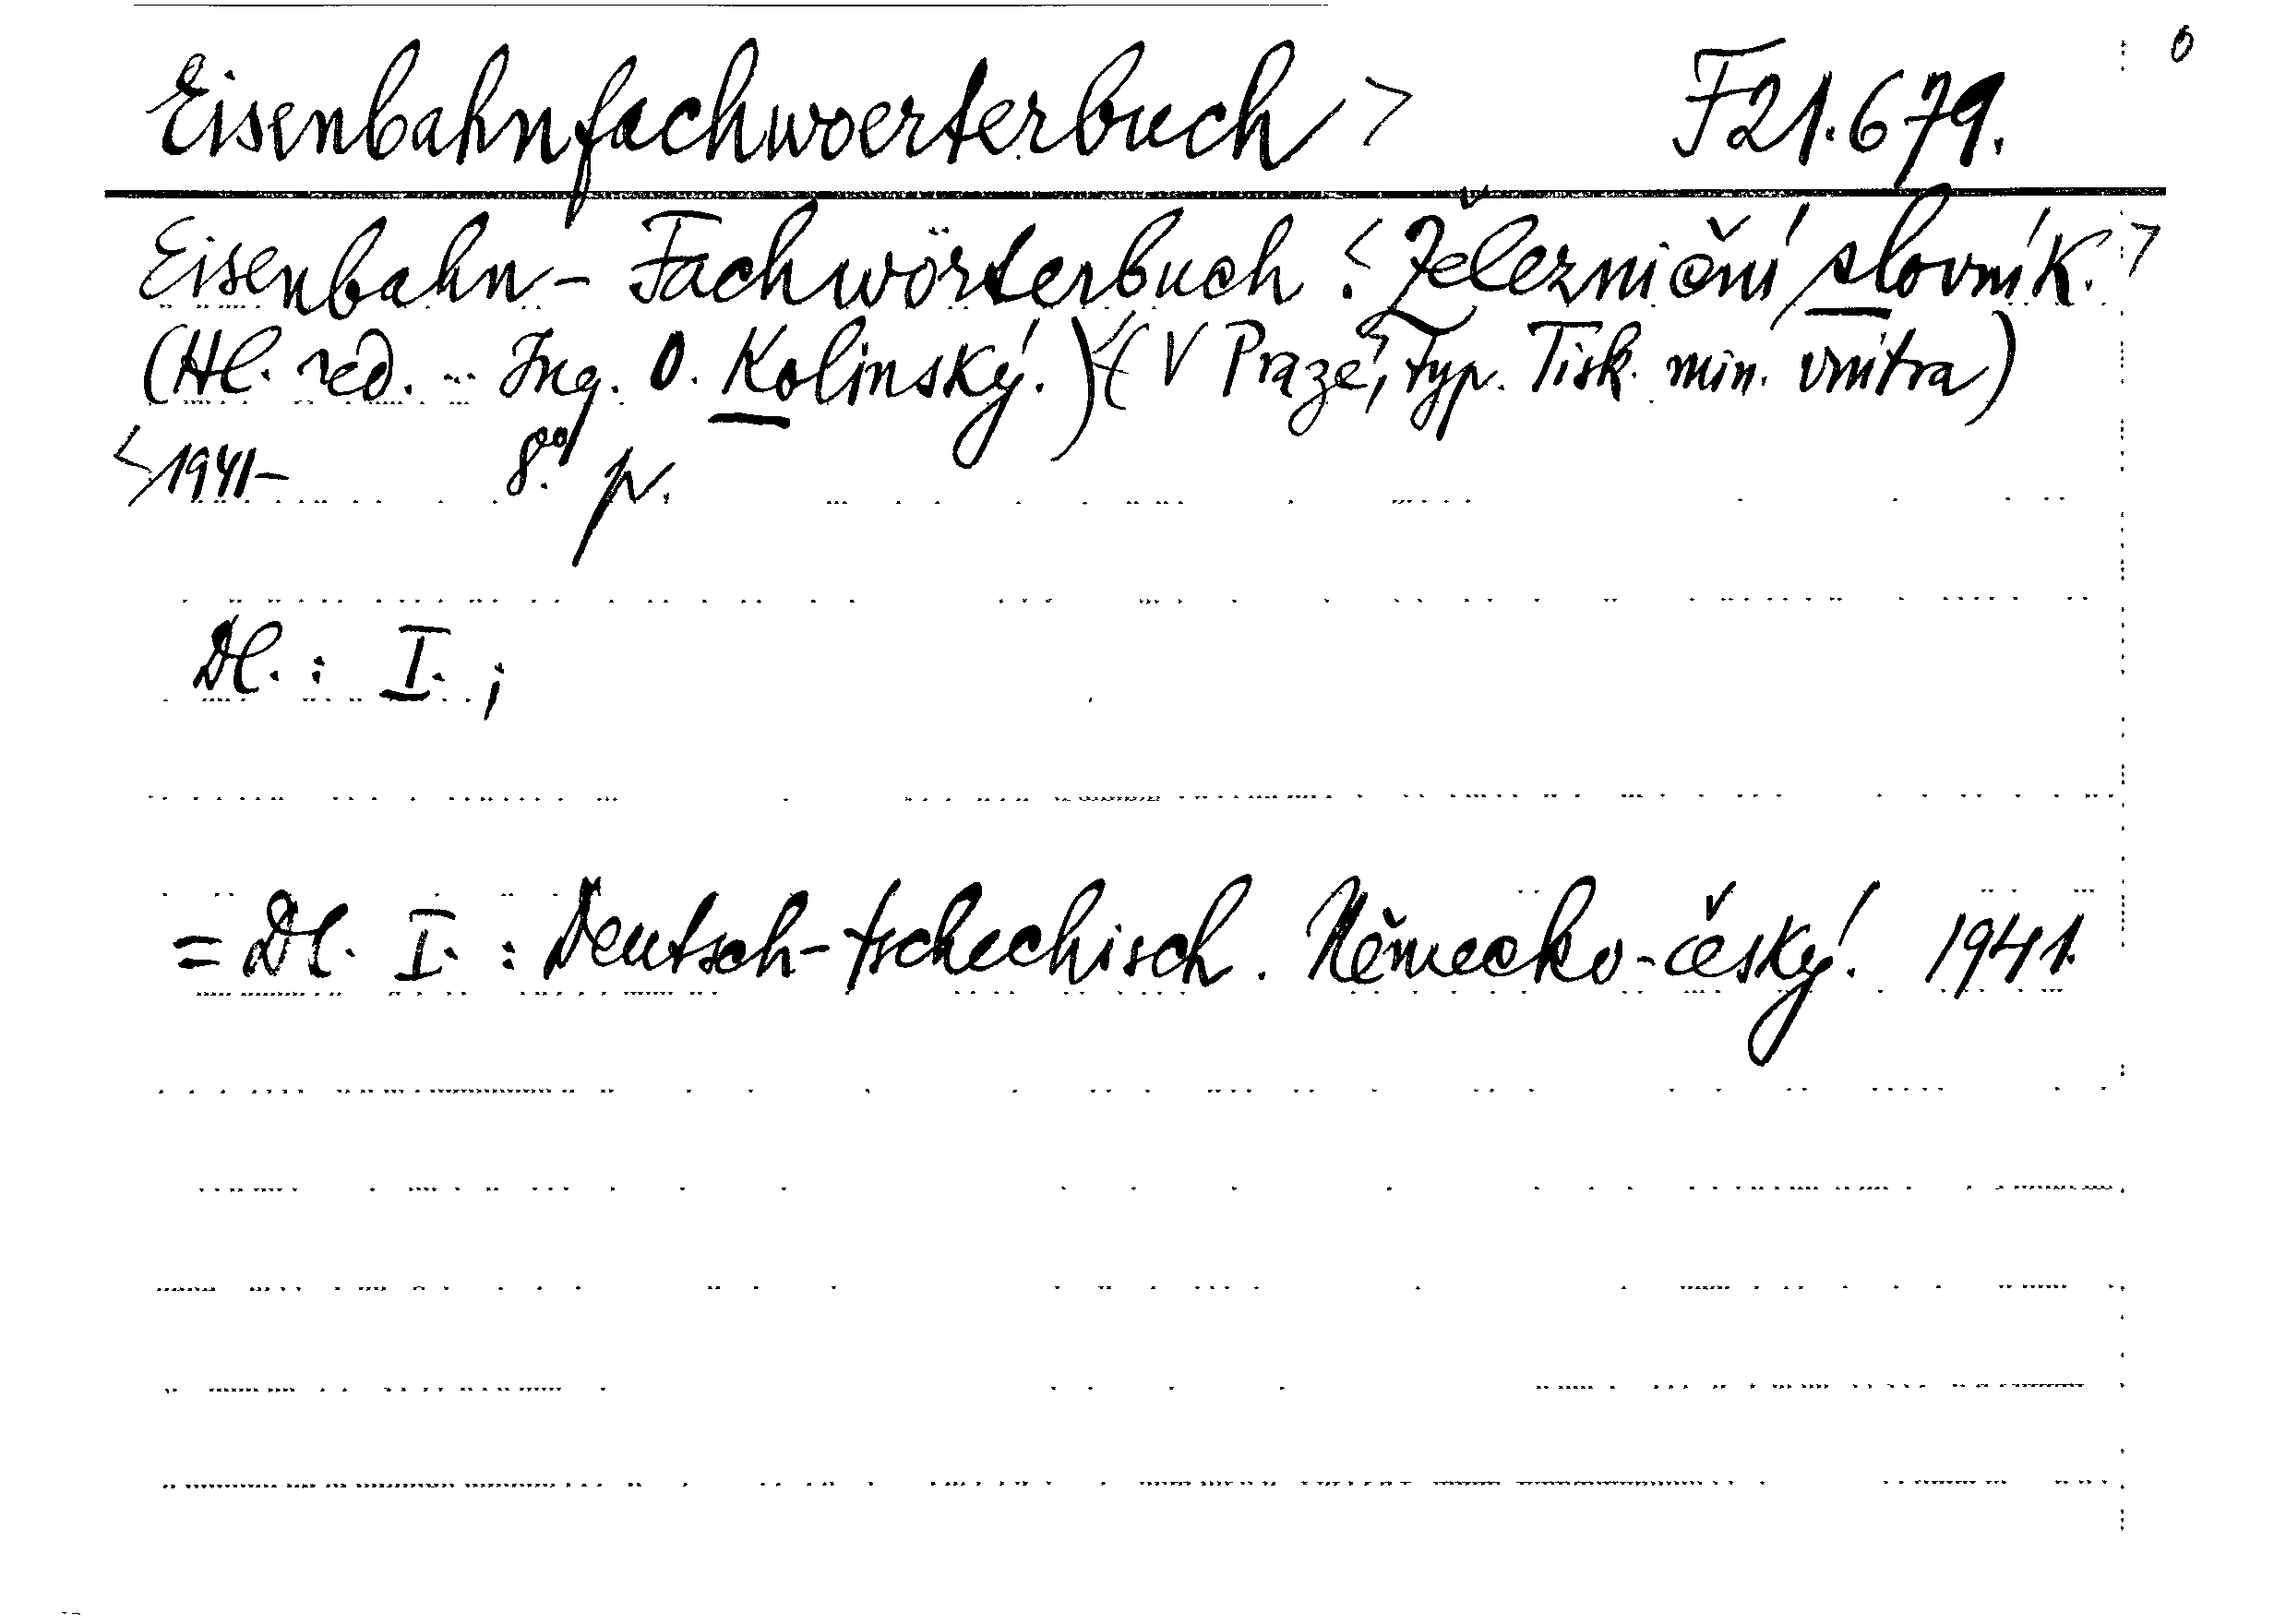 Eisenbahnfachwoerterbuch > F21.679.
Eisenbahn - Fachwörterbuch. < Železniční slovník. >
(Hl. red. - Ing. O. Kolinský.) < (V Praze, > Typ. Tisk. min. vnitra)
< 1941- 8°. p.
Dl. : I. ;
= Dl. I. : Deutsch-tschechisch. Německo-český. 1941.